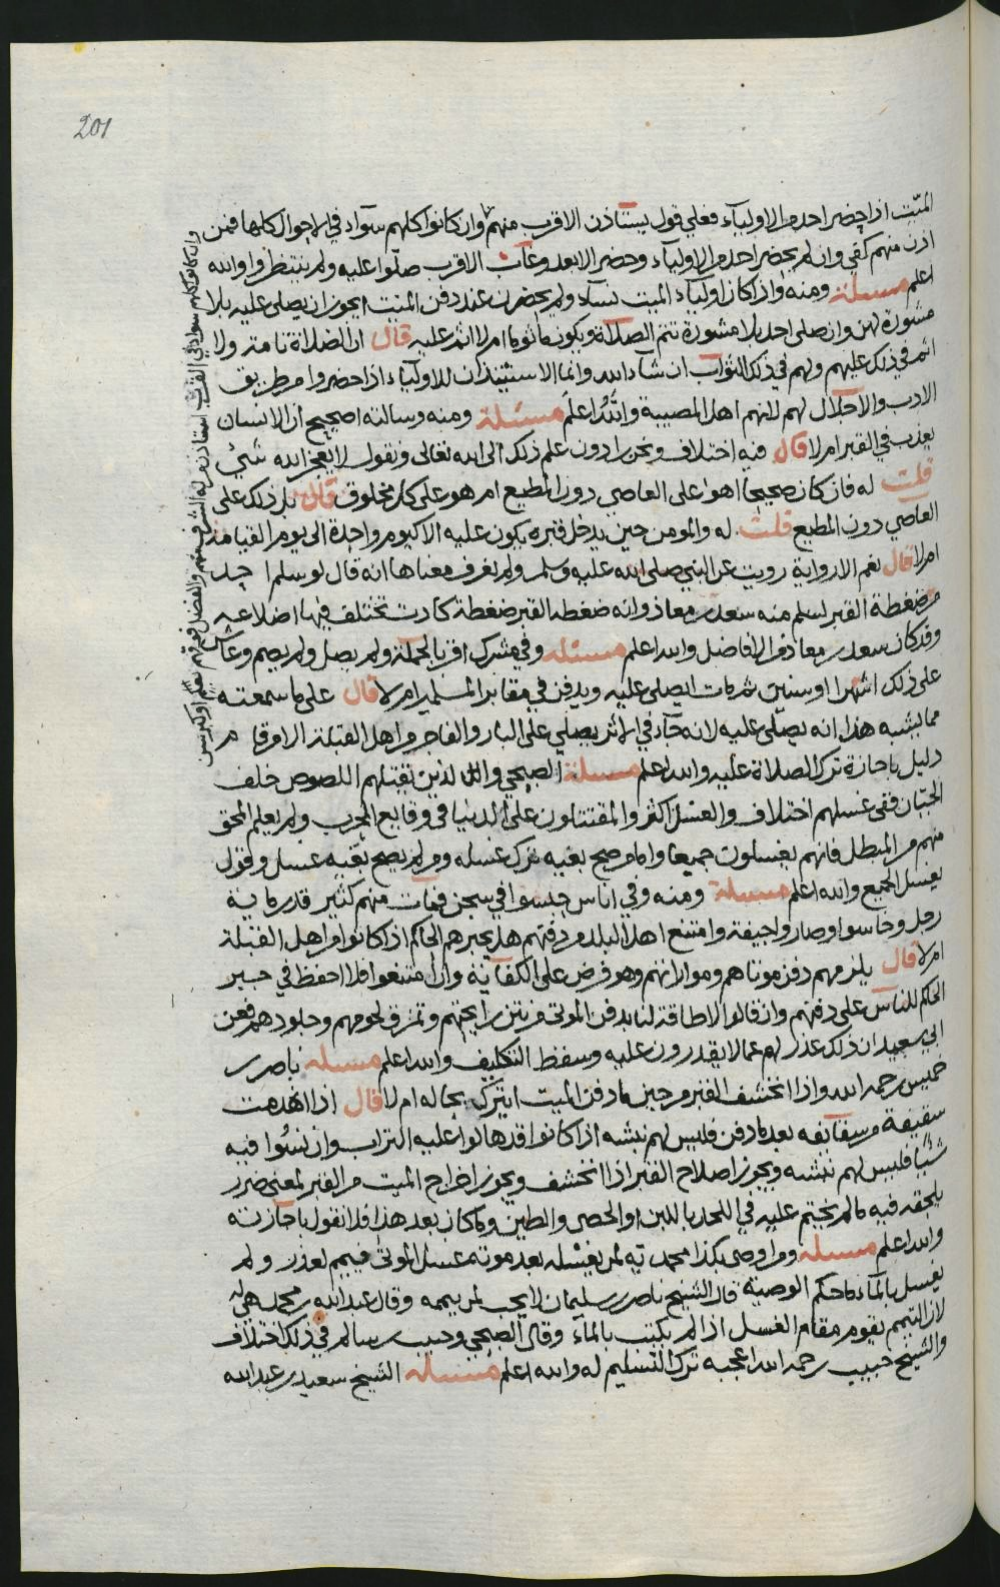 201
الميت اذا حضر احد من الاولياء فعلى قول يستاذن الاقرب منهم وان كانوا كلهم سواء في الاحوال كلها فمن
اذن منهم كفى وان لم يحضر احد من الاولياء وحضر الابعد وغاب الاقرب صلوا عليه ولم ينتظروا والله
اعلم مسئلة ومنه واذا كان اولياء الميت نساء ولم يحضرن عند دفن الميت ايجوز ان يصلى عليه بلا
مشورة لهن وان صلى احد بلا مشورة تتم الصلاة ويكون ماثوما ام لا اثم عليه قال ان الصلاة تامة ولا
اثم في ذلك عليهم ولهم في ذلك الثواب ان شاء الله وانما الاستئذان للاولياء اذا حضروا من طريق
الادب والاجلال لهم لانهم اهل المصيبة والله اعلم مسئلة ومنه وسالته اصحيح ان الانسان
يعذب في القبر ام لا قال فيه اختلاف ونحن رادون علم ذلك الى الله تعالى ونقول لا يعجز الله شيء
قلت له فان كان صحيحا اهو على العاصي دون المطيع ام هو على كل مخلوق قال بل ذلك على
العاصي دون المطيع قلت له والمومن حين يدخل قبره يكون عليه الا كيوم واحد الى يوم القيامة
ام لا قال نعم الا رواية رويت عن النبي صلى الله عليه وسلم ولم نعرف معناها انه قال لو سلم احد
من ضغطة القبر لسلم منه سعد بن معاذ وانه ضغطه القبر ضغطة كادت تختلف فيها اضلاعه
وقد كان سعد بن معاذ من الافاضل والله اعلم مسئلة وفي مشرك اقر بالجملة ولم يصل ولم يصم وعاش
على ذلك اشهرا او سنين ثم مات ايصلى عليه ويدفن في مقابر المسلمين ام لا قال على ما سمعته
مما يشبه هذا انه يصلى عليه لانه جاء في الاثر يصلي على البار والفاجر من اهل القبلة الا من قام
دليل باجازة ترك الصلاة عليه والله اعلم مسئلة الصبحي والذين تقتلهم اللصوص خلف
الجبان ففي غسلهم اختلاف والغسل اكثر والمقتتلون على الدنيا في وقايع الحرب ولم يعلم المحق
منهم من المبطل فانهم يغسلون جميعا واما من صح بغيه ترك غسله ومن لم يصح بغيه غسل وقول
يغسل الجميع والله اعلم مسئلة ومنه وفي اناس حبسوا في سجن فمات منهم كثير قدر ماية
رجل وخاسوا وصاروا جيفة وامتنع اهل البلد من دفنهم هل يجبرهم الحاكم اذا كانوا من اهل القبلة
ام لا قال يلزمهم دفن موتاهم ومواراتهم وهو فرض على الكفاية وان امتنعوا فلا احفظ في جبر
الحاكم للناس على دفنهم وان قالوا لا طاقة لنا بدفن الموتى من نتن رايحتهم وتمزق لحومهم وجلودهم فعن
ابي سعيد ان ذلك عذر لهم عما لا يقدرون عليه وسقط التكليف والله اعلم مسئلة ناصر بن
خميس رحمه الله واذا انخشف القبر من حين ما دفن الميت ايترك بحاله ام لا قال اذا انهدمت
سقيفة من سقائفه بعد ما دفن فليس لهم نبشه اذا كانوا قد هالوا عليه التراب وان نسوا فيه
شيئا فليس لهم نبشه ويجوز اصلاح القبر اذا انخشف ويجوز اخراج الميت من القبر لمعنى ضرر
يلحقه فيه ما لم يختم عليه في اللحد باللبن او الحصى والطين وما كان بعد هذا فلا نقول باجازته
والله اعلم مسئلة ومن اوصى بكذا محمدية لمن يغسله بعد موته غسل الموتى فييمم لعذر ولم
يغسل بالماء ما حكم الوصية قال الشيخ ناصر بن سليمان لا يجب لمن ييممه وقال عبدالله بن محمد هي له
لان التيمم يقوم مقام الغسل اذا لم يكتب بالماء وقال الصبحي وحبيب بن سالم في ذلك اختلاف
والشيخ حبيب رحمه الله اعجبه ترك التسليم له والله اعلم مسئلة الشيخ سعيد بن عبدالله
وان كانوا كلهم سواء في القرب استاذن من له الشرف منهم والفضل